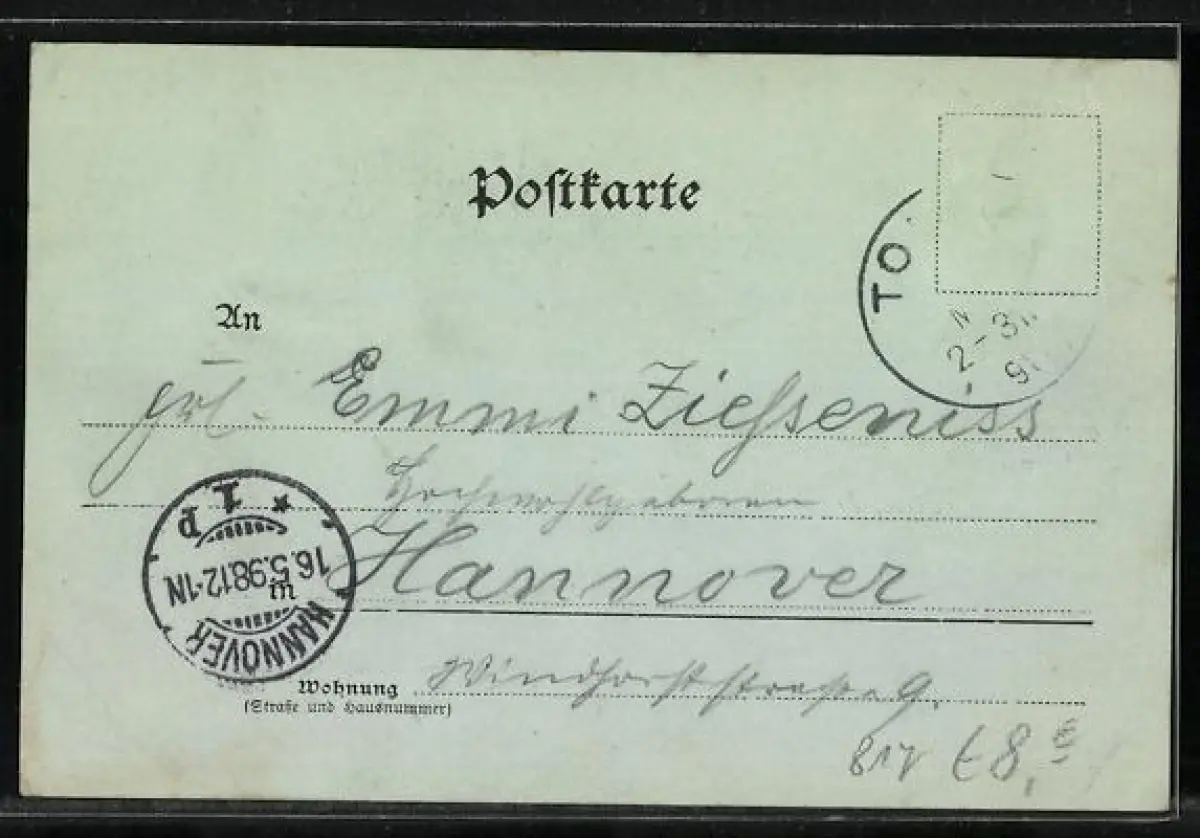 Postkarte
TO
2-3
9
An
Frl. Emmi Ziehseniss
Hochwohlgeboren
in Hannover
HANNOVER
16.5.98.12-1N
* 1 p
Wohnung Windhorststrasse 9.
(Straße und Hausnummer)
€8,